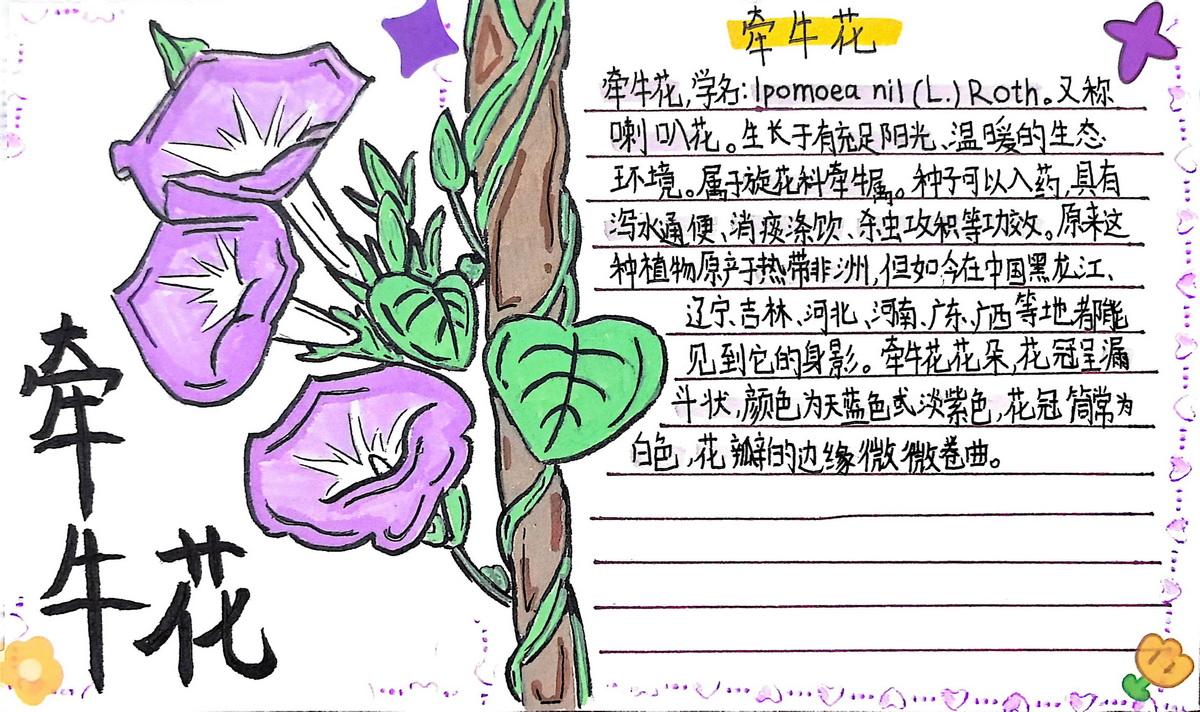 牵
牛花
牵牛花
牵牛花,学名:Ipomoea nil(L.)Roth。又称
喇叭花。生长于有充足阳光、温暖的生态
环境。属于旋花科牵牛属。种子可以入药,具有
泻水通便、消痰涤饮、杀虫攻积等功效。原来这
种植物原产于热带非洲,但如今在中国黑龙江、
辽宁、吉林、河北、河南、广东、广西等地都能
见到它的身影。牵牛花花朵,花冠呈漏
斗状,颜色为天蓝色或淡紫色,花冠筒常为
白色,花瓣的边缘微微卷曲。